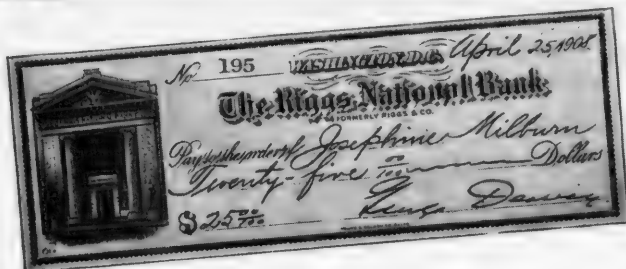 No 195 WASHINGTON, D.C. April 25, 1908.
The Riggs National Bank
FORMERLY RIGGS & CO.
Pay to the order of Josephine Milburn
Twenty-five 00/100 Dollars
$25 00/100